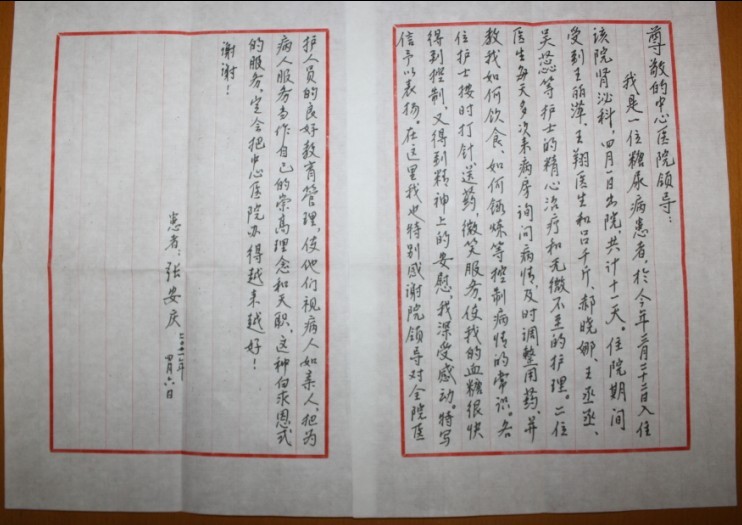 尊敬的中心医院领导：
我是一位糖尿病患者，於今年三月二十二日入住
该院肾泌科，四月一日出院，共计十一天。住院期间
受到王丽萍、王翔医生和吕千斤、郝晓娜、王丞丞、
吴蕊等护士的精心治疗和无微不至的护理。二位
医生每天多次来病房询问病情，及时调整用药，并
教我如何饮食、如何锻炼等控制病情的常识。各
位护士按时打针送药，微笑服务。使我的血糖很快
得到控制，又得到精神上的安慰，我深受感动。特写
信予以表扬。在这里我也特别感谢院领导对全院医
护人员的良好教育管理，使他们视病人如亲人，把为
病人服务当作自己的崇高理念和天职，这种白求恩式
的服务，定会把中心医院办得越来越好！
谢谢！
患者：张安庆
二〇一一年
四月六日